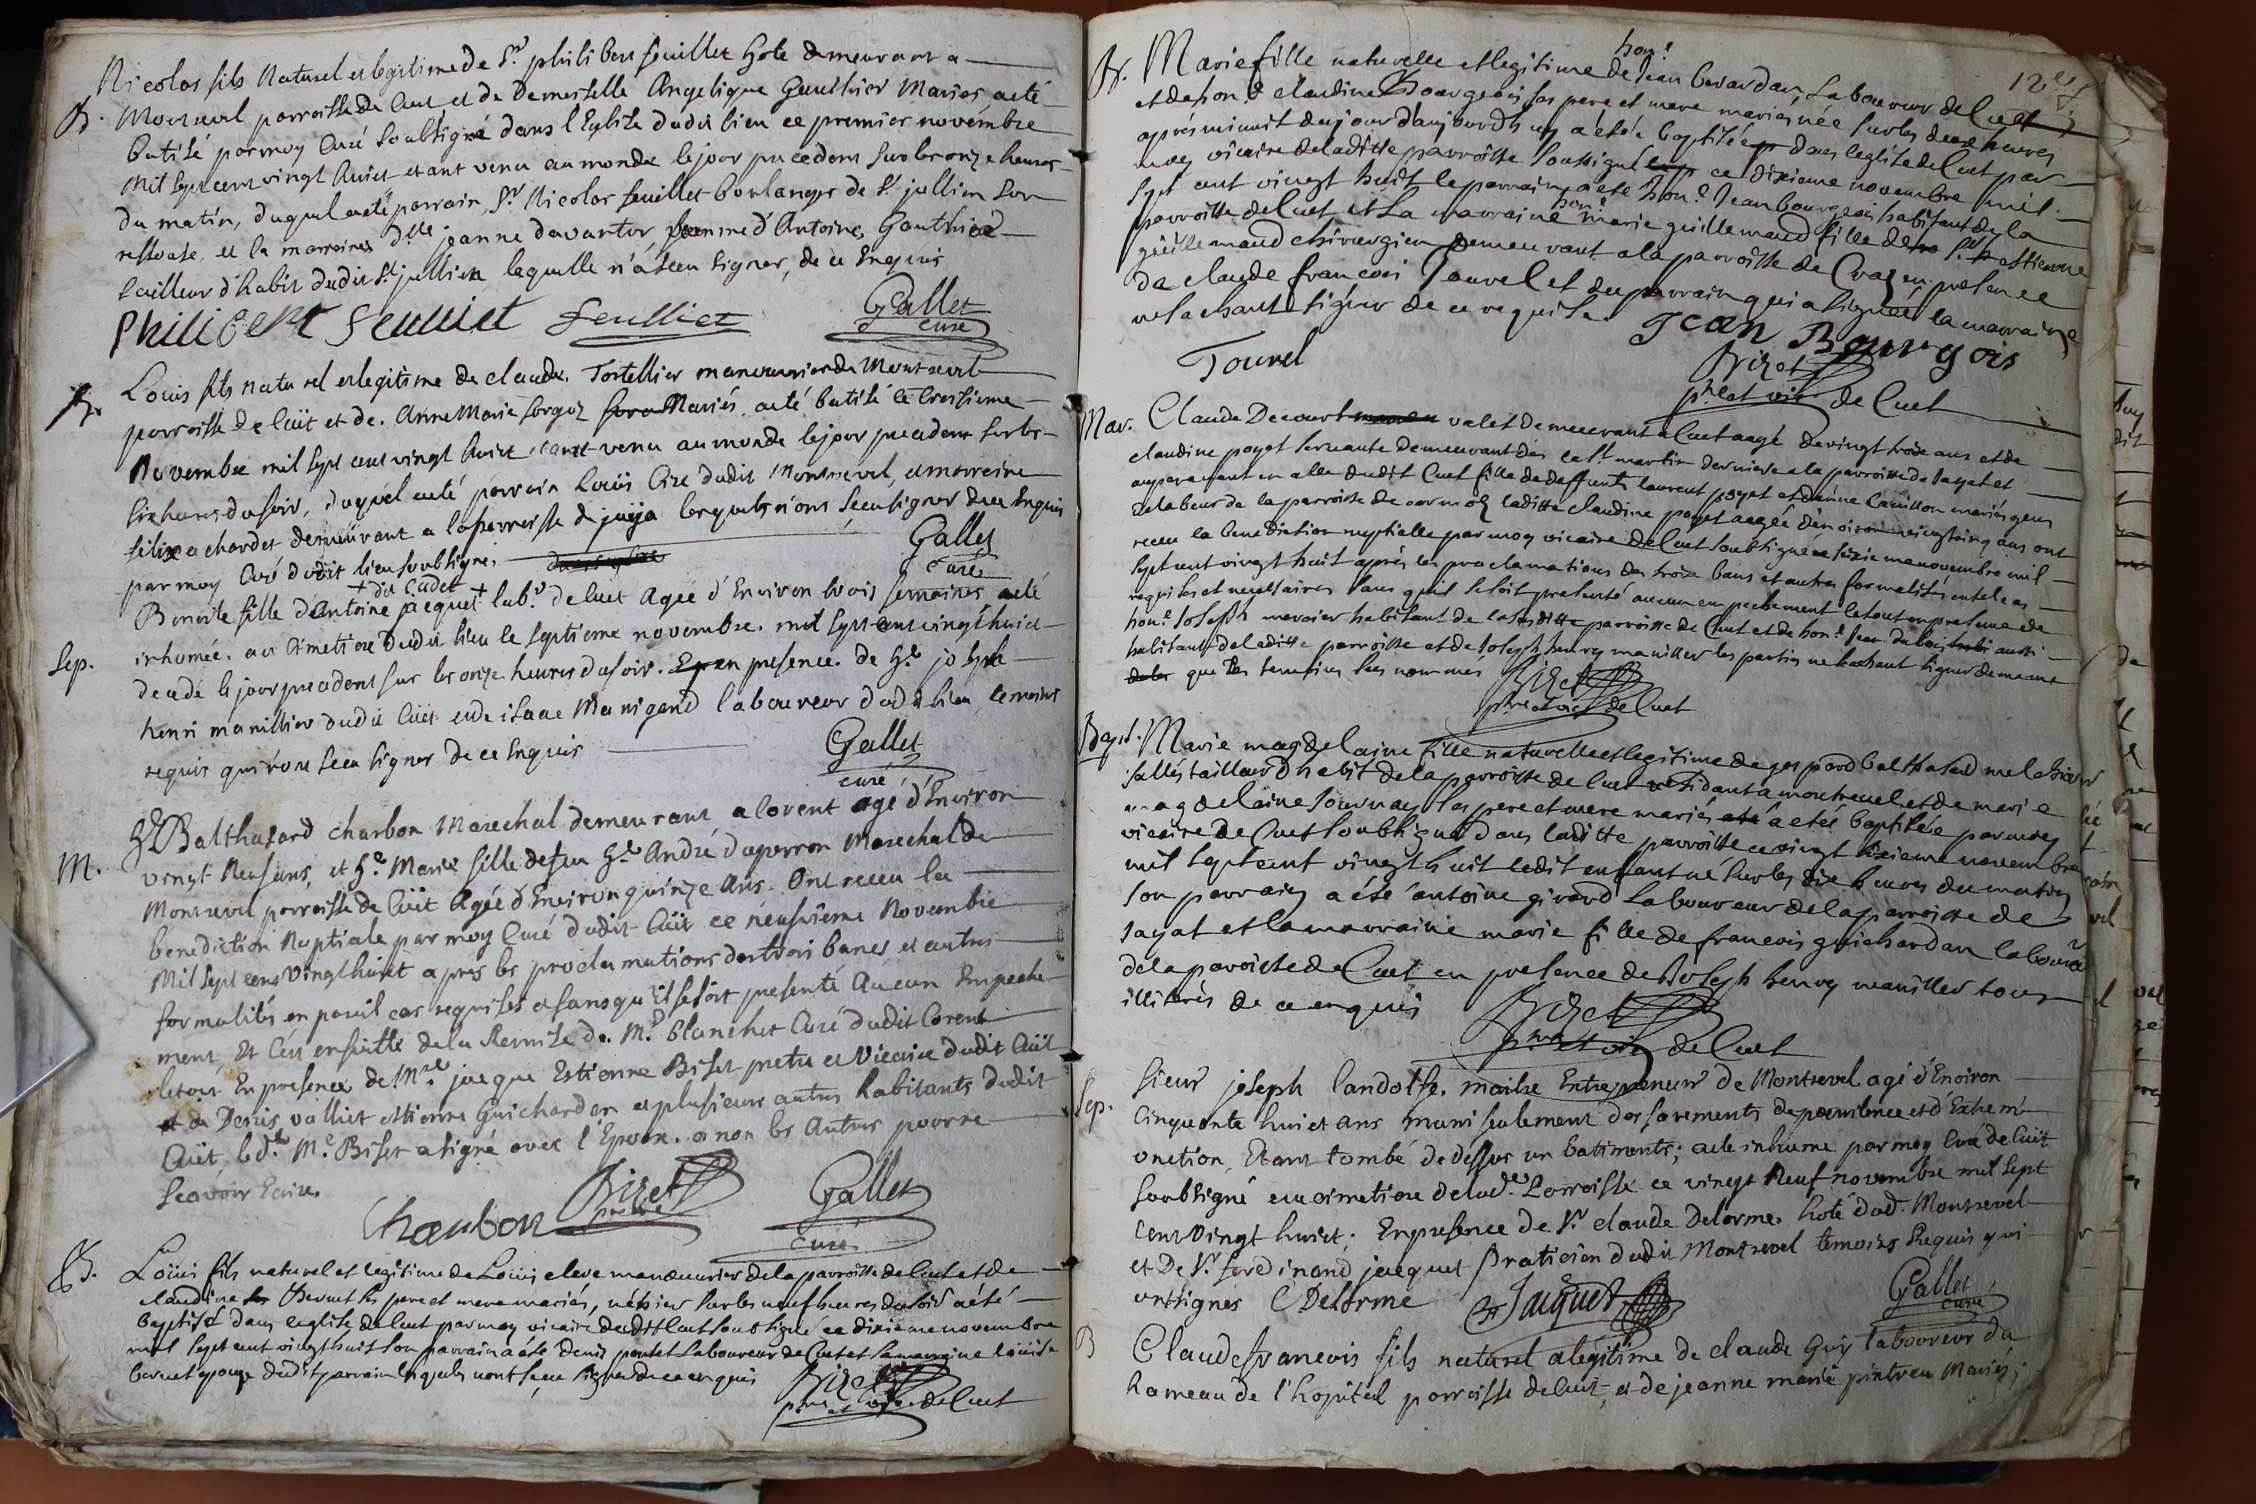 Nicolas fils Naturel et legitime de Sr. philibert feuillet hote demeurant a
B. Montrevel parroisse de Cuet et de Demoiselle Angelique Gauthier Mariés, a eté
batisé par moy Curé soubsigné dans l'Eglise dudit lieu ce premier novembre
Mil sept cent vingt huict etant venu au monde le jour precedent sur les onze heures
du matin, duquel a eté parrain, Sr. Nicolas feuillet boulanger de St. jullien sur
ressouse, et la marraine dlle. jeanne davantur femme d'Antoine Gauthier
tailleur d'habit dudit St. jullien laquelle n'a sceu signer, de ce Enquis
Philibert feuilliet feuilliet Gallet
curé
B. Louis fils naturel et legitime de claude Tortellier manouvrier de Montrevel
parroisse de Cüit et de Anne Marie Mariés, a eté batisé ce troisieme
Novembre mil sept cent vingt huict etant venu au monde le jour precedent sur les
six heures du soir, duquel a eté parrain Loüis dudit Montrevel, et marreine
demeurant a la parroisse de lesquels n'ont sceu signer de ce Enquis
par moy Curé dudit lieu soubsigné. Gallet
curé
+ dit Cadet +
Benoite fille d'Antoine jacquet labr. de Cuet Agée d'Environ trois semaines a eté
Sep. inhumée au Cimetiere dudit lieu le septieme novembre mil sept cent vingt huict
decedé le jour precedent sur les onze heures du soir. en presence de he. joseph
henri manillier dudit Cüit et de isaac Manigand laboureur dudit lieu temoins
requis qui n'ont sceu signer de ce Enquis Gallet
curé
M. he. Balthazard charbon Marechal demeurant a Corent agé d'Environ
vingt neuf ans, et he. Marie fille de feu he. André duperron Marechal de
Montrevel parroisse de Cüit Agée d'Environ quinze Ans. Ont receu la
benediction Nuptiale par moy Curé dudit Cüit ce neufvieme Novembre
Mil sept cent vingt huict apres les proclamations des trois bancs et autres
formalités en pareil cas requises et sans qu'il se soit presenté Aucun Empeche
ment, Et C'en ensuitte de la Remise de Mr. blanchet Curé dudit Corent
le tout En presence de Mre. jacque Estienne Biset pretre et Vicaire dudit Cüit
et de Denis valliet estienne Guichardan et plusieurs autres habitants dudit
Cüit, led. Me. Biset a signé avec l'Epoux. et non les Autres pour ne
sçavoir Ecrire.
Charbon Bizet Gallet
prêtre curé
B. Loüis fils naturel et legitime de Loüis eleve manœuvrier de la parroisse de Cuet et de
claudine Bernet ses pere et mere mariés, né hier sur les neuf heures du soir a été
baptisé dans l'eglise de Cuet par moy vicaire dudit Cuet soubsigné ce dixieme novembre
mil sept cent vingt huit son parrain a été Denis poutet Laboureur de Cuet et sa marraine loüise
bernet epouse dudit parrain lesquels n'ont sçeu signer de ce enquis Bizet
ptre et vic. de Cuet
12
B. Marie fille naturelle et legitime de hon. Jean bevardan, Laboureur de Cuet
et de hon. claudine Bourgeois ses pere et mere mariés née sur les deux heures
après minuit du jour d'aujourdhuy a été baptisée dans l'eglise de Cuet par
moy vicaire de laditte parroisse soussigné ce dixieme novembre mil
sept cent vingt huit le parrain a été hon. Jean bourgeois habitant de la
parroisse de Cuet et la marraine hon. marie guillemaud fille de Sr. estienne
guillemaud chirurgien demeurant a la parroisse de Cras en presence
de claude françois Tourel et du parrain qui a signé la marraine
ne sachant signer de ce requise. Jean Bourgois
Tourel Bizet
ptre et vic. de Cuet
Mar. Claude Decourt valet demeurant a Cuet aagé de vingt trois ans et de
claudine poyet servante demeurant dès la St. martin derniere a la parroisse de Jayat et
auparavant en alle dudit Cuet fille de deffunts laurent poyet et d'anne Camillon mariés gens
de labeur de la parroisse de marmoz laditte claudine poyet aagée d'environ vingt cinq ans ont
receu la benediction nuptialle par moy vicaire de Cuet soubsigné ce sezieme novembre mil
sept cent vingt huit après les proclamations des trois bans et autres formalités en tel cas
requises et necessaires sans quil se soit presenté aucun empechement le tout en presence de
hon. Joseph mercier habitant de la susditte parroisse de Cuet et de hon. Jean dubois aussi
habitant de laditte parroisse et de Joseph henry manillier les parties ne sachant signer de meme
que les temoins sus nommés Bizet
ptre et vic. de Cuet
Bapt. Marie magdelaine fille naturelle et legitime de gaspard balthasard melchior
sallés tailleur d'habit de la parroisse de Cuet residant a montrevel et de marie
magdelaine Journay ses pere et mere mariés a eté baptisée par moy
vicaire de Cuet soubsigné dans laditte parroisse ce vingt sixieme novembre
mil sept cent vingt huit ledit enfant né sur les dix heures du matin
son parrain a été antoine girard Laboureur de la parroisse de
Jayat et la marraine marie fille de francois guichardan laboureur
de la paroisse de Cuet en presence de Joseph henry manillier tous
illiterés de ce enquis Bizet
ptre et vic. de Cuet
Sep. Sieur joseph landolse, maitre Entrepreneur de Montrevel agé d'Environ
Cinquante huict ans muni seulement des sacrements de penitence et d'Extreme
onction, Etant tombé de dessus un batiments; a eté inhumé par moy Curé de Cüit
soubsigné au cimetiere de lade. Parroisse ce vingt Neuf novembre mil sept
cent vingt huict; En presence de Sr. claude Delorme, hoté dud. Montrevel
et De Sr. ferdinand jacquet Praticien dudit Montrevel temoins Requis qui
ont signés C Delorme Jacquet Gallet
curé
B Claude francois fils naturel et légitime de claude Guy laboureur du
hameau de l'hopital parroisse de Cuit, et de jeanne marie pintreu Mariés;